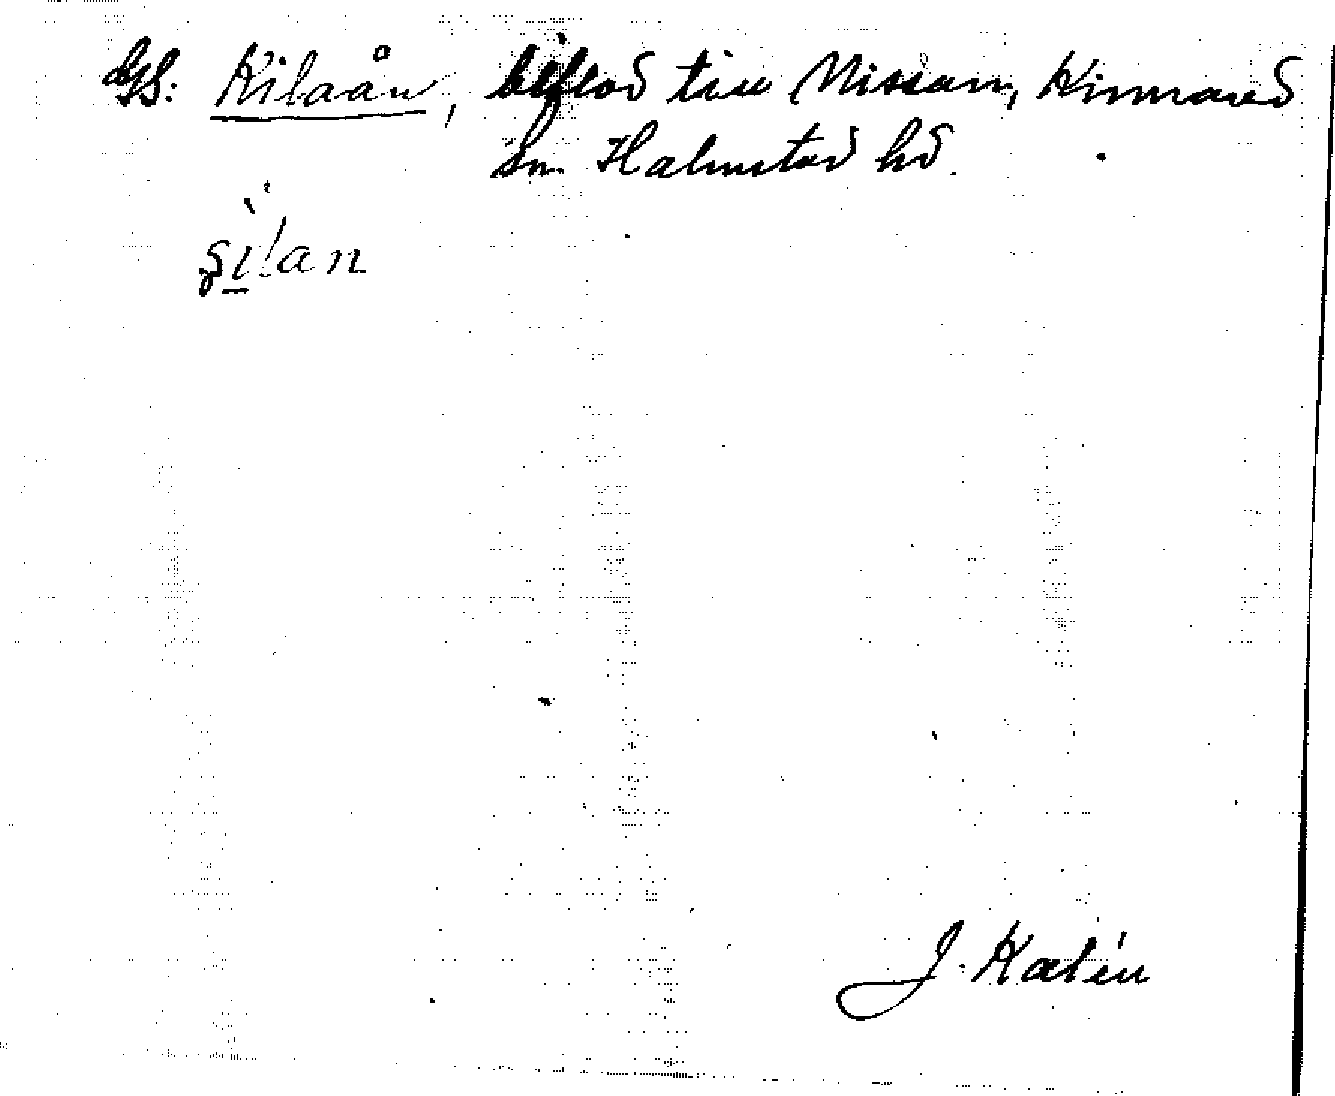 GS: Kilaån, biflod till Nissan, Kinnared
sn Halmstad hd.
şi̱lan
J. Kalén